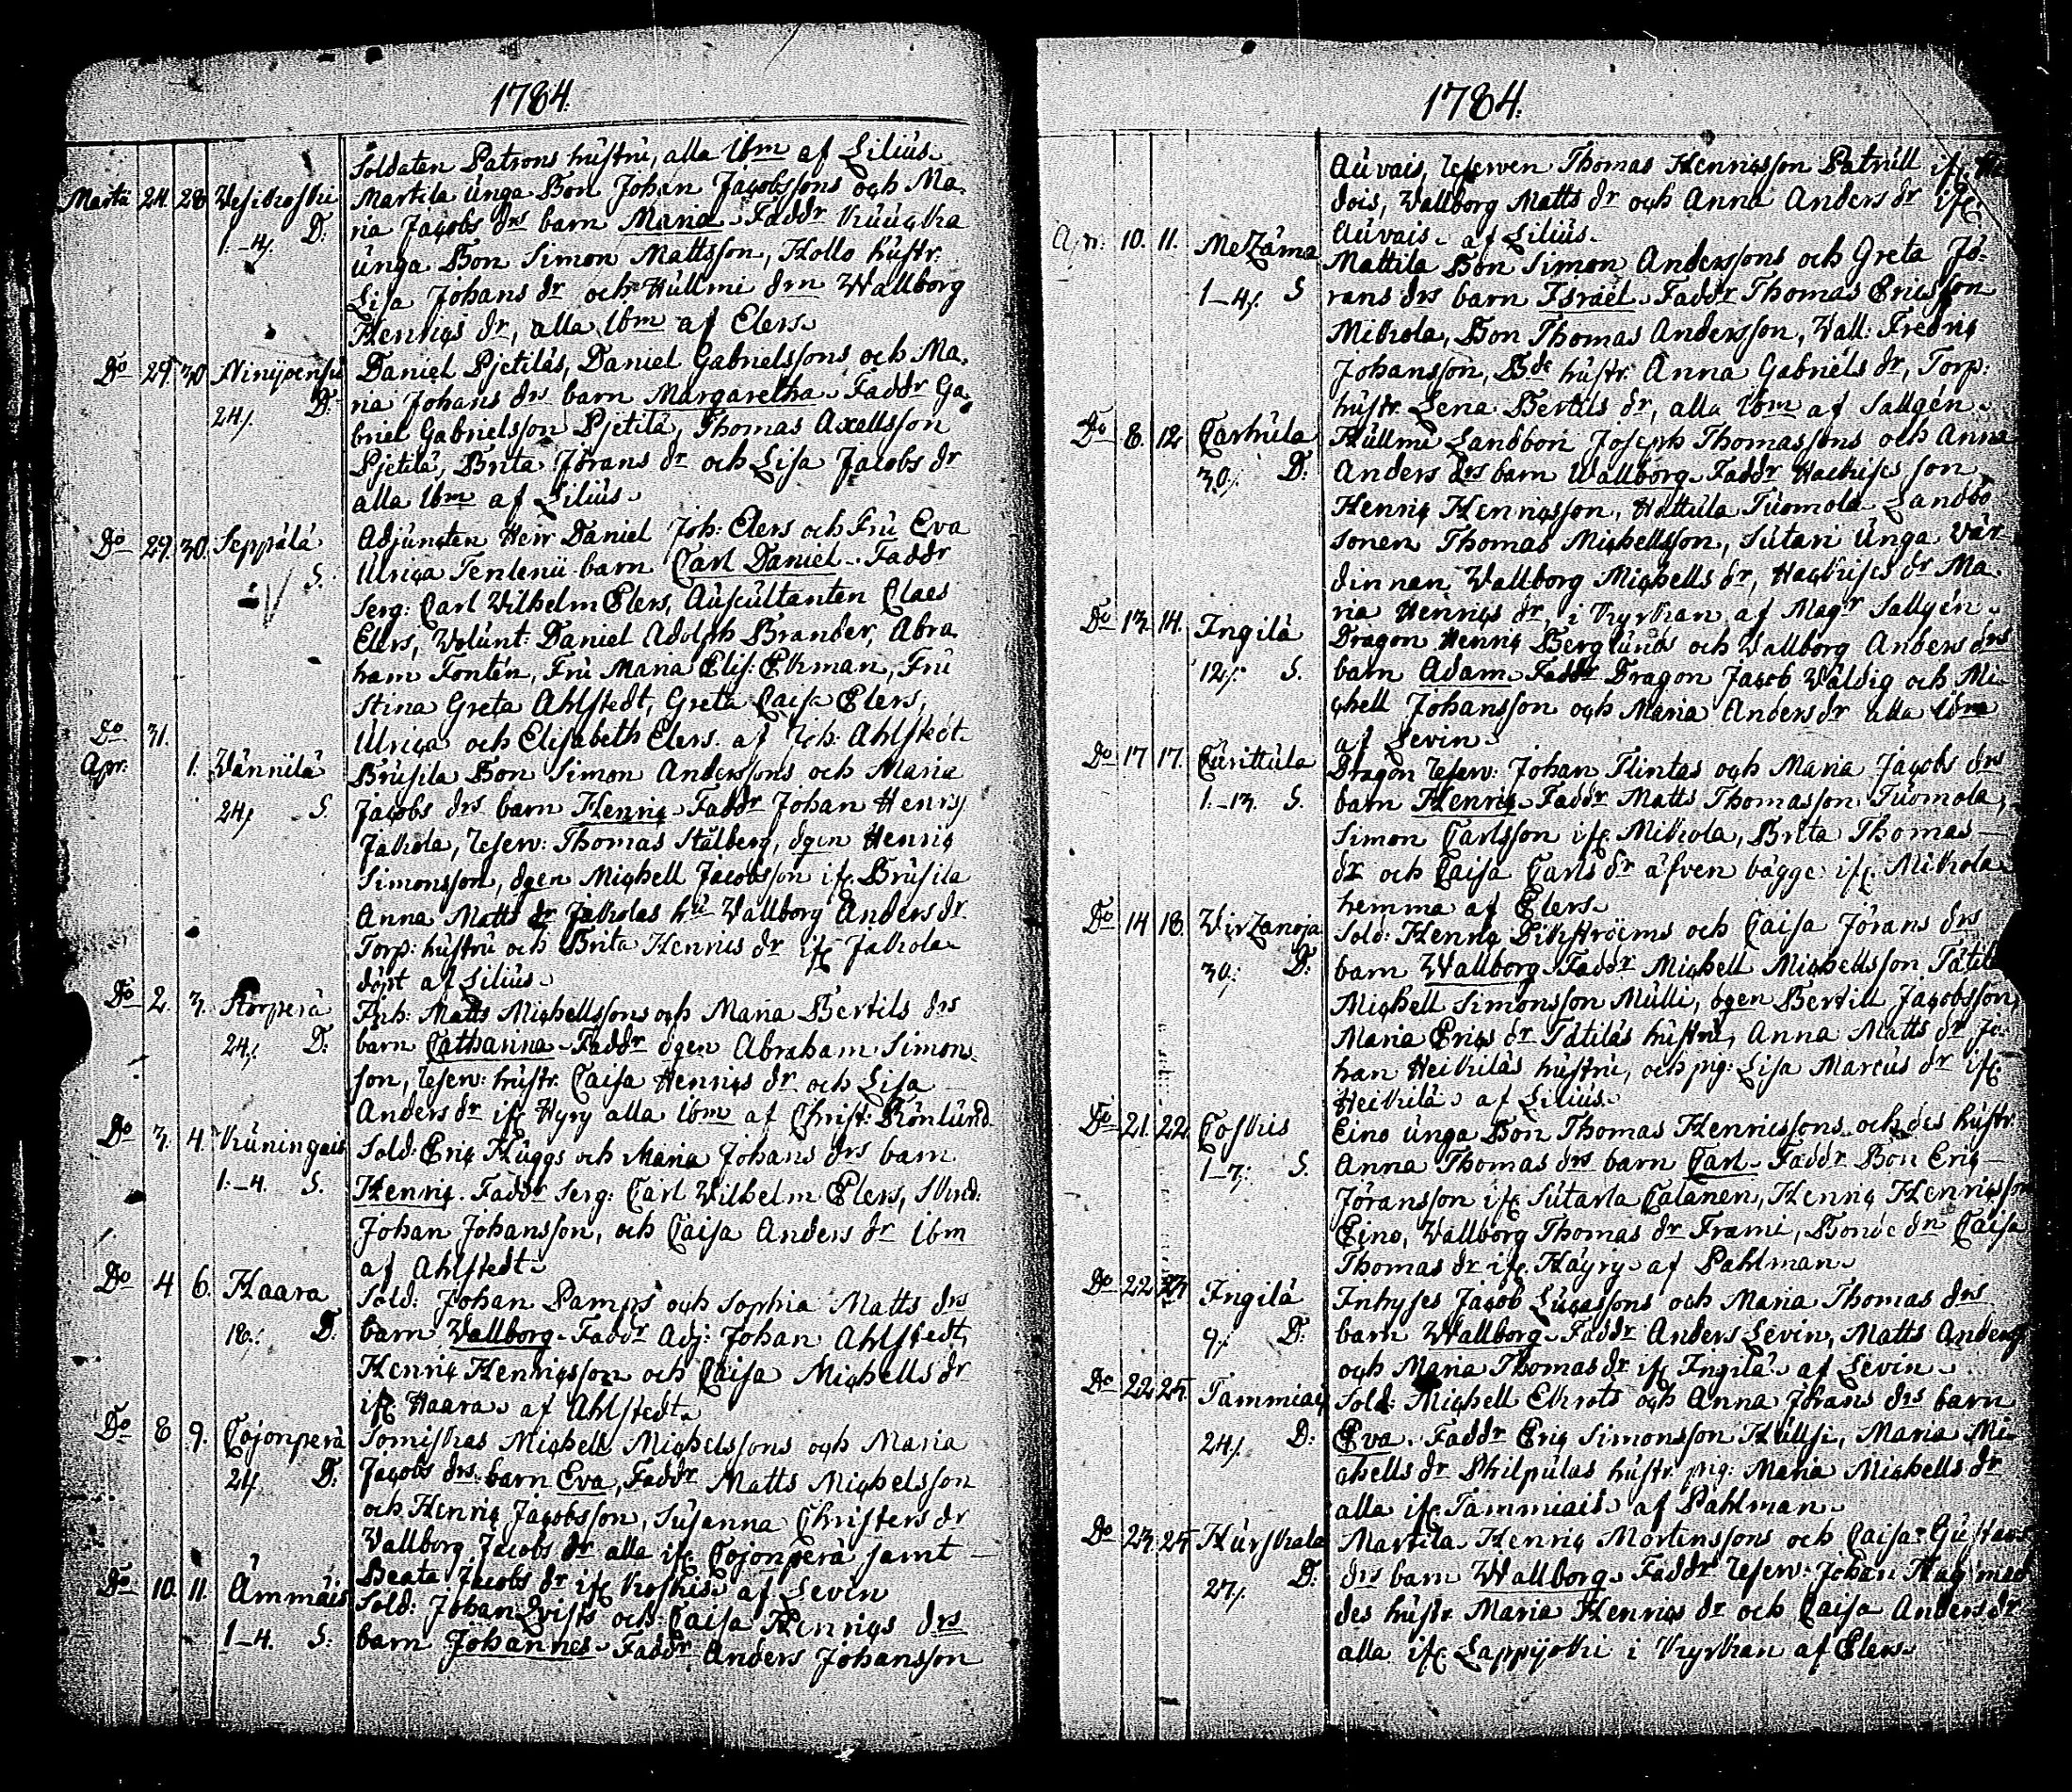 1784.
Soldaten Patrons hustru, alla ibm af Lilius.
Marti 24. 28 Wesikoski Martila Unga Bon Johan Jacobssons och Ma-
1.-4/. D: ria Jacobs drs barn Maria. Faddr
unga Bon Simon Mattsson, Hollo hustr:
Lisa Johans dr och Hullmi drn Wallborg
Henrics dr, alla ibm af Elers.
Do 29. 30 Ninijoensu Daniel Pjetiläs, Daniel Gabrielssons och Ma-
24/. D: ria Johans drs barn Margaretha. Faddr Ga-
briel Gabrielsson Pjetilä, Thomas Axellsson
Pjetilä, Brita Jörans dr och Lisa Jacobs dr
alla ibm af Lilius.
Do 29. 30. Seppälä Adjuncten Herr Daniel Joh: Elers och Fru Eva
S. Ulrica Tenlenii barn Carl Daniel. Faddr
Serg: Carl Wilhelm Elers, Auscultanten Claes
Elers, Wolunt: Daniel Adolph Brander, Abra-
ham Fontén, Fru Maria Elis: Ekman, Fru
Stina Greta Ahlstedt, Greta Caisa Elers,
Do 31. Ulrica och Elisabeth Elers. af Joh: Ahlstedt.
Apr: 1. Wännilä Brusila Bon Simon Anderssons och Maria
24/. S. Jacobs drs barn Henric. Faddr Johan Henrics
Jakola, Reserv: Thomas Stålberg, dgen Henric
Simonsson, dgen Michell Jacobsson ifr. Brusila
Anna Matts dr Jakolas hu Wallborg Anders dr
Torp: hustru och Brita Henrics dr ifr Jakola
döpt af Lilius.
Do 2. 3. Korperä Inh: Matts Michellssons och Maria Bertils drs
24/. D: barn Catharina. Faddr dgen Abraham Simons-
son, Reserv: hustr: Caisa Henrics dr och Lisa
Anders dr ifr Hyry alla ibm af Christ: Rönlund.
Do 3. 4. Kuningais Sold: Eric Huggs och Maria Johans drs barn
1.-4. S. Henric. Faddr Serg: Carl Wilhelm Elers,
Johan Johansson, och Caisa Anders dr ibm
af Ahlstedt.
Do 4 6. Haara Sold: Johan Pamps och Sophia Matts drs
18/. D. barn Wallborg. Faddr Adj: Johan Ahlstedt,
Henric Henricsson och Caisa Michells dr
ifr. Haara. af Ahlstedt.
Do 8 9. Cojonperä Somiskas Michell Michelssons och Maria
24/ D: Jacobs drs barn Eva, Faddr Matts Michelsson
och Henric Jacobsson, Susanna Christers dr
Wallborg Jacobs dr alla ifr. Cojonperä samt
Beata Jacobs dr ifr Koskis. af Levin
Do 10. 11. Ämmäis Sold: Johan Qvists och Caisa Henrics drs
1-4. S: barn Johannes. Faddr Anders Johansson
1784.
Auvais, Reserven Thomas Henricsson Patrull ifr.
dois, Wallborg Matts dr och Anna Anders dr ifr.
Auvais. af Lilius.
Apr: 10. 11. Mezäma Mattila Bon Simon Anderssons och Greta Jö-
1-4/. S rans drs barn Israël. Faddr Thomas Ericsson
Mikola, Bon Thomas Andersson, Wall: Fredric
Johansson, Bde hustr: Anna Gabriels dr, Torp:
hustr: Lena Bertils dr, alla ibm af Sallgén.
Do 8. 12 Carhula Hullmi Landbon Joseph Thomassons och Anna
30/. D: Anders drs barn Wallborg. Faddr Hackises son
Henric Henricsson, Hattula Tuomola Landbo
sonen Thomas Michellsson, Sutari unga Vär-
dinnan Wallborg Michells dr, Hackises dr Ma-
ria Henrics dr, i kyrkan af Magr Sallgén.
Do 13. 14. Ingilä Dragon Henric Berglunds och Wallborg Anders drs
12/. S. barn Adam. Faddr Dragon Jacob Waldig och Mi-
chell Johansson och Maria Anders dr alla ibm
af Levin.
Do 17 17. Curittula Dragon Reserv: Johan Flintas och Maria Jacobs drs
1.-13. S. barn Henric. Faddr Matts Thomasson Tuomola,
Simon Carlsson ifr. Mikola, Brita Thomas
dr och Caisa Carls dr äfven bägge ifr. Mikola
hemma af Elers.
Do 14 18. Wirzanoja Sold: Henric Dikströms och Caisa Jörans drs
30/. D: barn Wallborg. Faddr Michell Michellsson Tätil
Michell Simonsson Mulli, dgen Bertill Jacobsson,
Maria Erics dr Tätiläs hustru, Anna Matts dr Jo-
han Heikiläs hustru, och pig: Lisa Marcus dr ifr.
Heikilä. af Lilius.
Do 21. 22 Coskis Eino unga Bon Thomas Henricssons och des hustr:
1-7. S. Anna Thomas drs barn Carl. Faddr Bon Eric
Jöransson ifr Sutarla Calanen, Henric Henricsson
Eino, Wallborg Thomas dr Frami, Bonde drn Caisa
Thomas dr ifr. Häyry. af Pahlman.
Do 22 Ingilä Inhyses Jacob Lucassons och Maria Thomas drs
9/. D: barn Wallborg. Faddr Anders Levin, Matts Anders
och Maria Thomas dr ifr Ingilä. af Levin.
Do 22 25. Tammiais Sold: Michell Ekrots och Anna Jörans drs barn
24/. D: Eva. Faddr Eric Simonsson Hullsi, Maria Mi-
chells dr Philpulas hustr: pig: Maria Michells dr
alla ifr. Tammiais. af Pahlman.
Do 23. 25 Hurskala Martila Henric Mortenssons och Caisa Gustavs
27/. D: drs barn Wallborg. Faddr Reserv: Johan Hag med
des hustr. Maria Henrics dr och Caisa Anders dr
alla ifr. Lappijoki i Kyrkan af Elers.